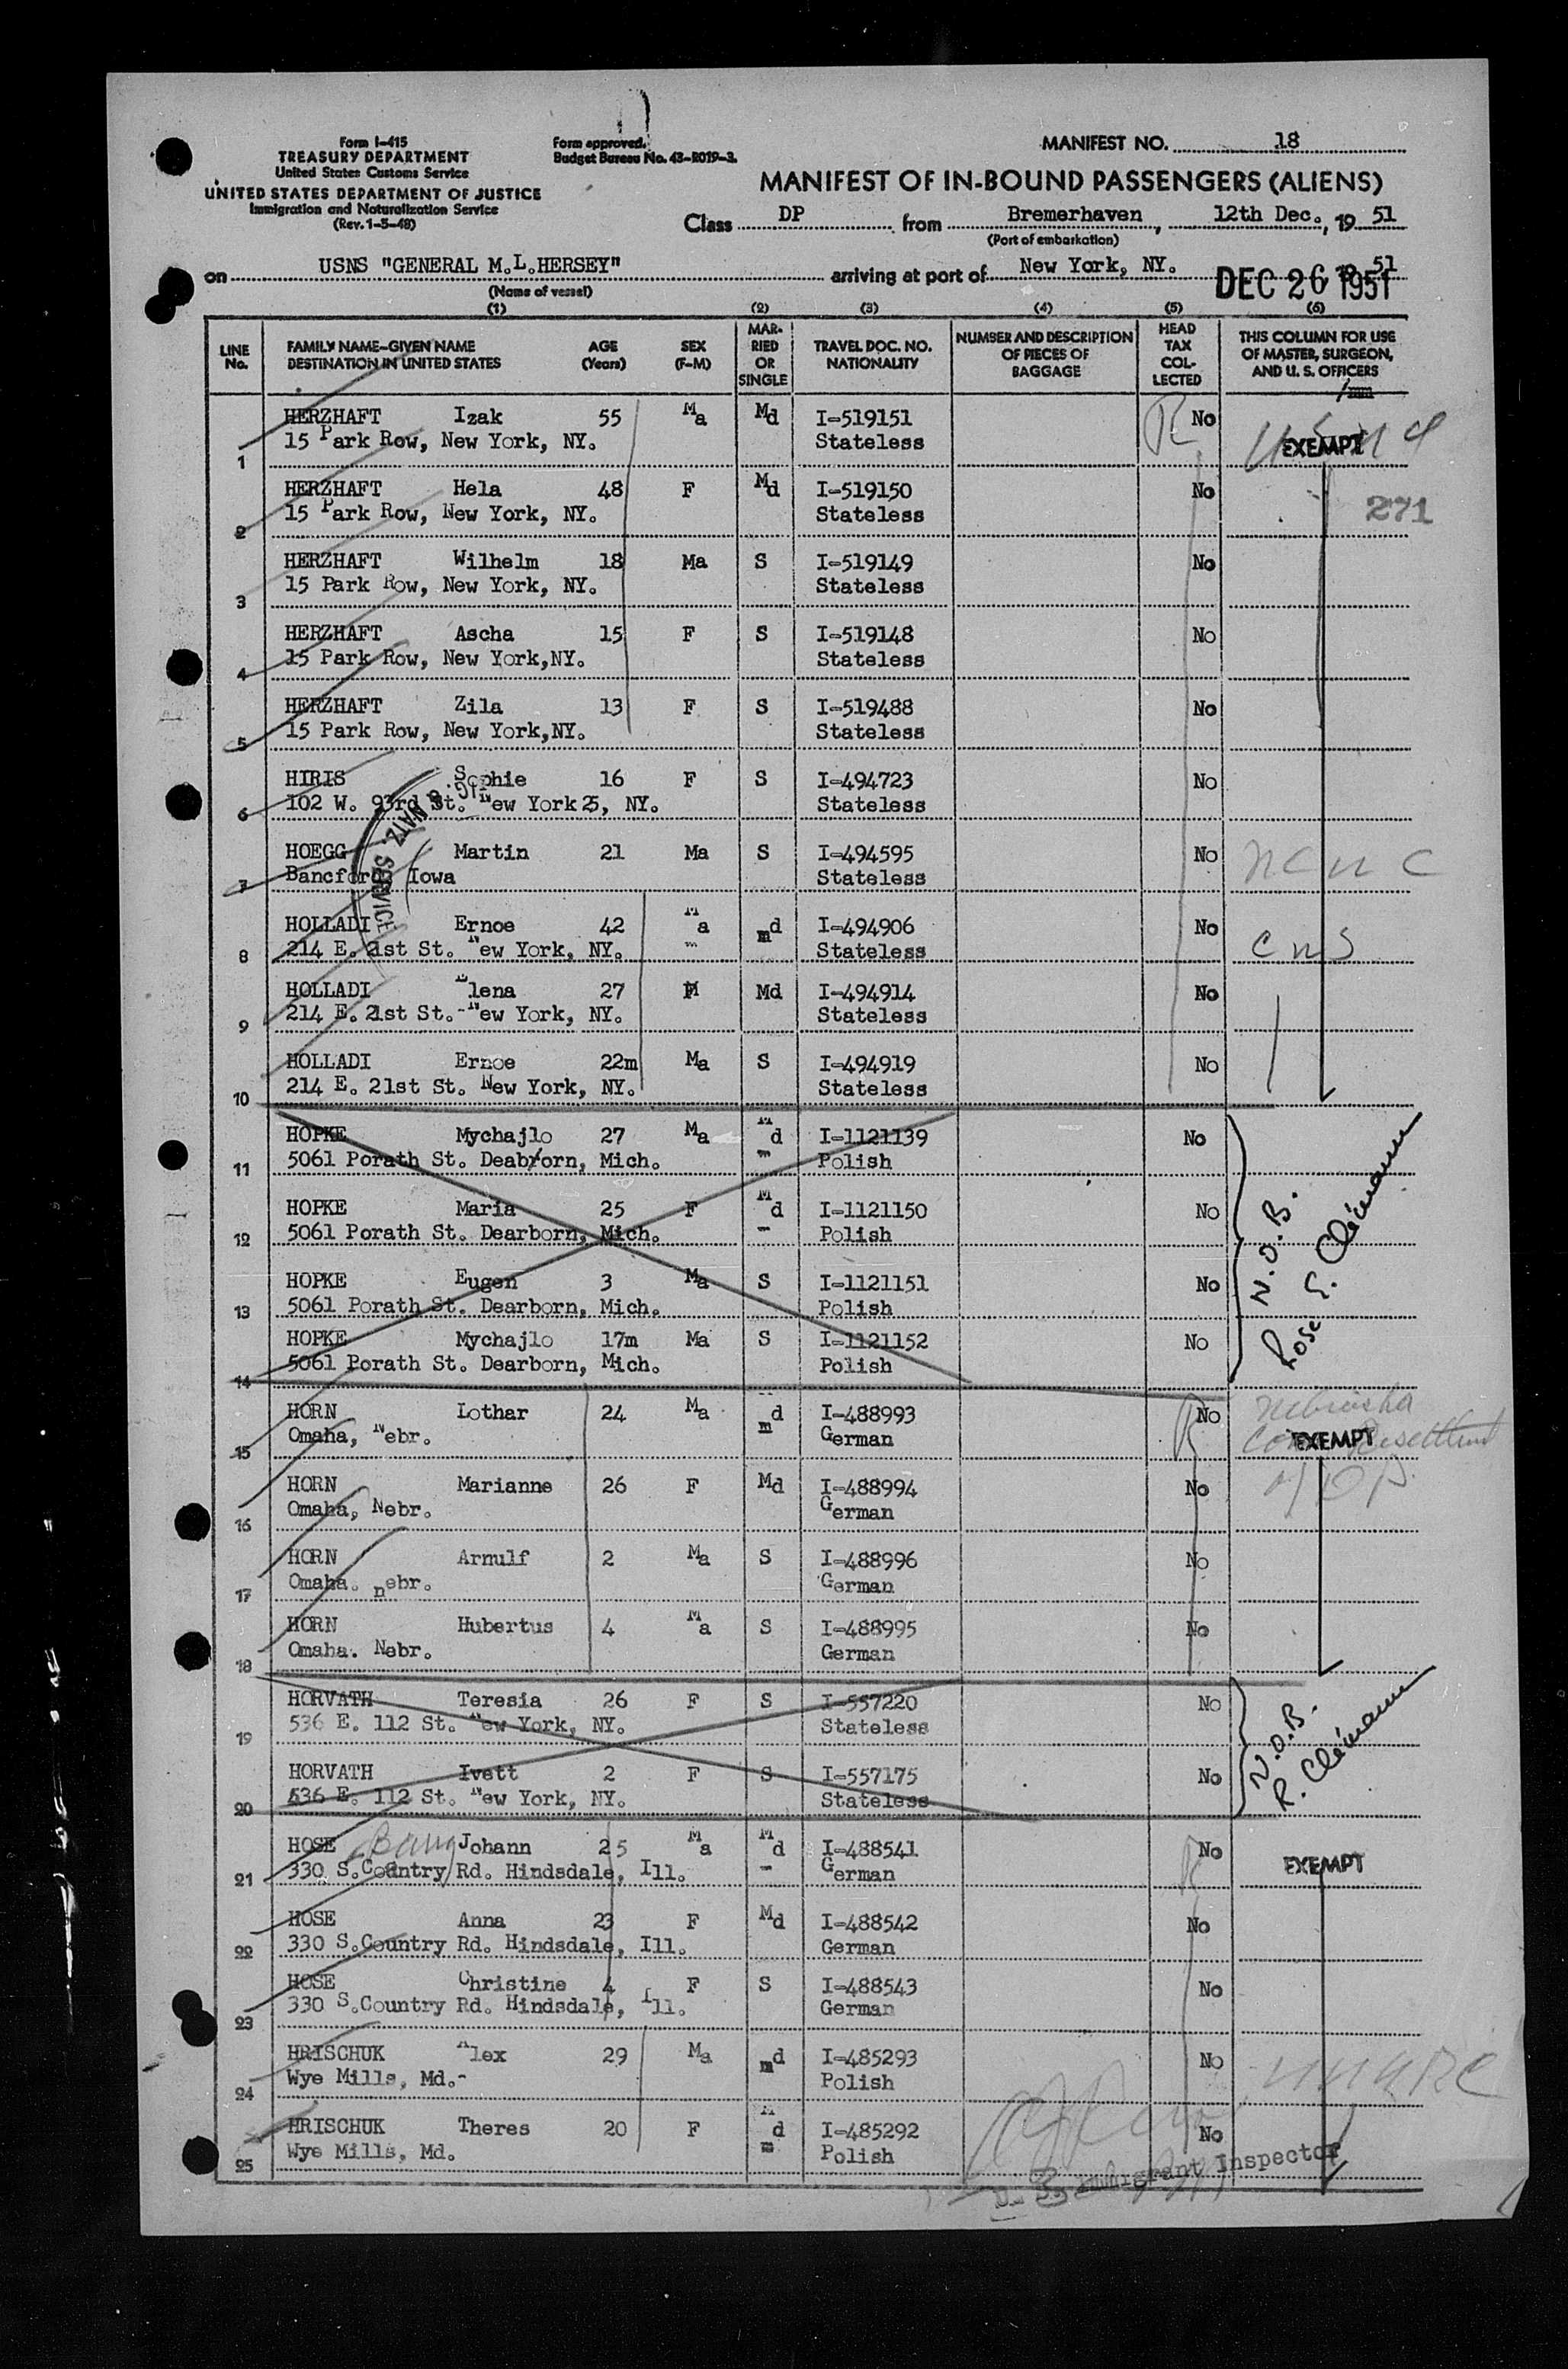 Form I-415
TREASURY DEPARTMENT
United States Customs Service
UNITED STATES DEPARTMENT OF JUSTICE
Immigration and Naturalization Service
(Rev. 1-5-48)
Form approved.
Budget Bureau No. 43-R019-3.
MANIFEST NO. 18
MANIFEST OF IN-BOUND PASSENGERS (ALIENS)
Class DP from Bremerhaven, 12th Dec., 19 51
(Port of embarkation)
on USNS "GENERAL M.L.HERSEY" arriving at port of New York, NY. 51
DEC 26 1951
(Name of vessel)
(1) (2) (3) (4) (5) (6)
LINE No. FAMILY NAME-GIVEN NAME DESTINATION IN UNITED STATES AGE (Years) SEX (F-M) MARRIED OR SINGLE TRAVEL DOC. NO. NATIONALITY NUMBER AND DESCRIPTION OF PIECES OF BAGGAGE HEAD TAX COLLECTED THIS COLUMN FOR USE OF MASTER, SURGEON, AND U. S. OFFICERS
HERZHAFT Izak 55 Ma Md I-519151 No
1 15 Park Row, New York, NY. Stateless EXEMPT
HERZHAFT Hela 48 F Md I-519150 No
2 15 Park Row, New York, NY. Stateless 271
HERZHAFT Wilhelm 18 Ma S I-519149 No
3 15 Park Row, New York, NY. Stateless
HERZHAFT Ascha 15 F S I-519148 No
4 15 Park Row, New York,NY. Stateless
HERZHAFT Zila 13 F S I-519488 No
5 15 Park Row, New York,NY. Stateless
HIRIS Sophie 16 F S I-494723 No
6 102 W. 93rd St. New York 25, NY. Stateless
NATZ. SERVICE
HOEGG Martin 21 Ma S I-494595 No NCWC
7 Bancford Iowa Stateless
HOLLADI Ernoe 42 Ma md I-494906 No
8 214 E. 21st St. New York, NY. Stateless CWS
HOLLADI Elena 27 F Md I-494914 No
9 214 E. 21st St.-New York, NY. Stateless
HOLLADI Ernoe 22m Ma S I-494919 No
10 214 E. 21st St. New York, NY. Stateless
HOPKE Mychajlo 27 Ma Md I-1121139 No
11 5061 Porath St. Deabrorn, Mich. Polish
HOPKE Maria 25 F Md I-1121150 No
12 5061 Porath St. Dearborn, Mich. Polish
HOPKE Eugen 3 Ma S I-1121151 No
13 5061 Porath St. Dearborn, Mich. Polish
HOPKE Mychajlo 17m Ma S I-1121152 No
14 5061 Porath St. Dearborn, Mich. Polish
N.O.B.
Rose E. Clémann
HORN Lothar 24 Ma md I-488993 No Nebraska
15 Omaha, Nebr. German EXEMPT
HORN Marianne 26 F Md I-488994 No
16 Omaha, Nebr. German
HORN Arnulf 2 Ma S I-488996 No
17 Omaha. nebr. German
HORN Hubertus 4 Ma S I-488995 No
18 Omaha. Nebr. German
HORVATH Teresia 26 F S I-557220 No
19 536 E. 112 St. New York, NY. Stateless
HORVATH Ivett 2 F S I-557175 No
20 536 E. 112 St. New York, NY. Stateless
N.O.B.
R. Clémann
HOSE Johann 25 Ma Md I-488541 No
21 330 S.Country Rd. Hindsdale, Ill. German EXEMPT
HOSE Anna 23 F Md I-488542 No
22 330 S.Country Rd. Hindsdale, Ill. German
HOSE Christine 4 F S I-488543 No
23 330 S.Country Rd. Hindsdale, Ill. German
HRISCHUK Alex 29 Ma md I-485293 No
24 Wye Mills, Md.- Polish
HRISCHUK Theres 20 F Md I-485292 No
25 Wye Mills, Md. Polish
Immigrant Inspector